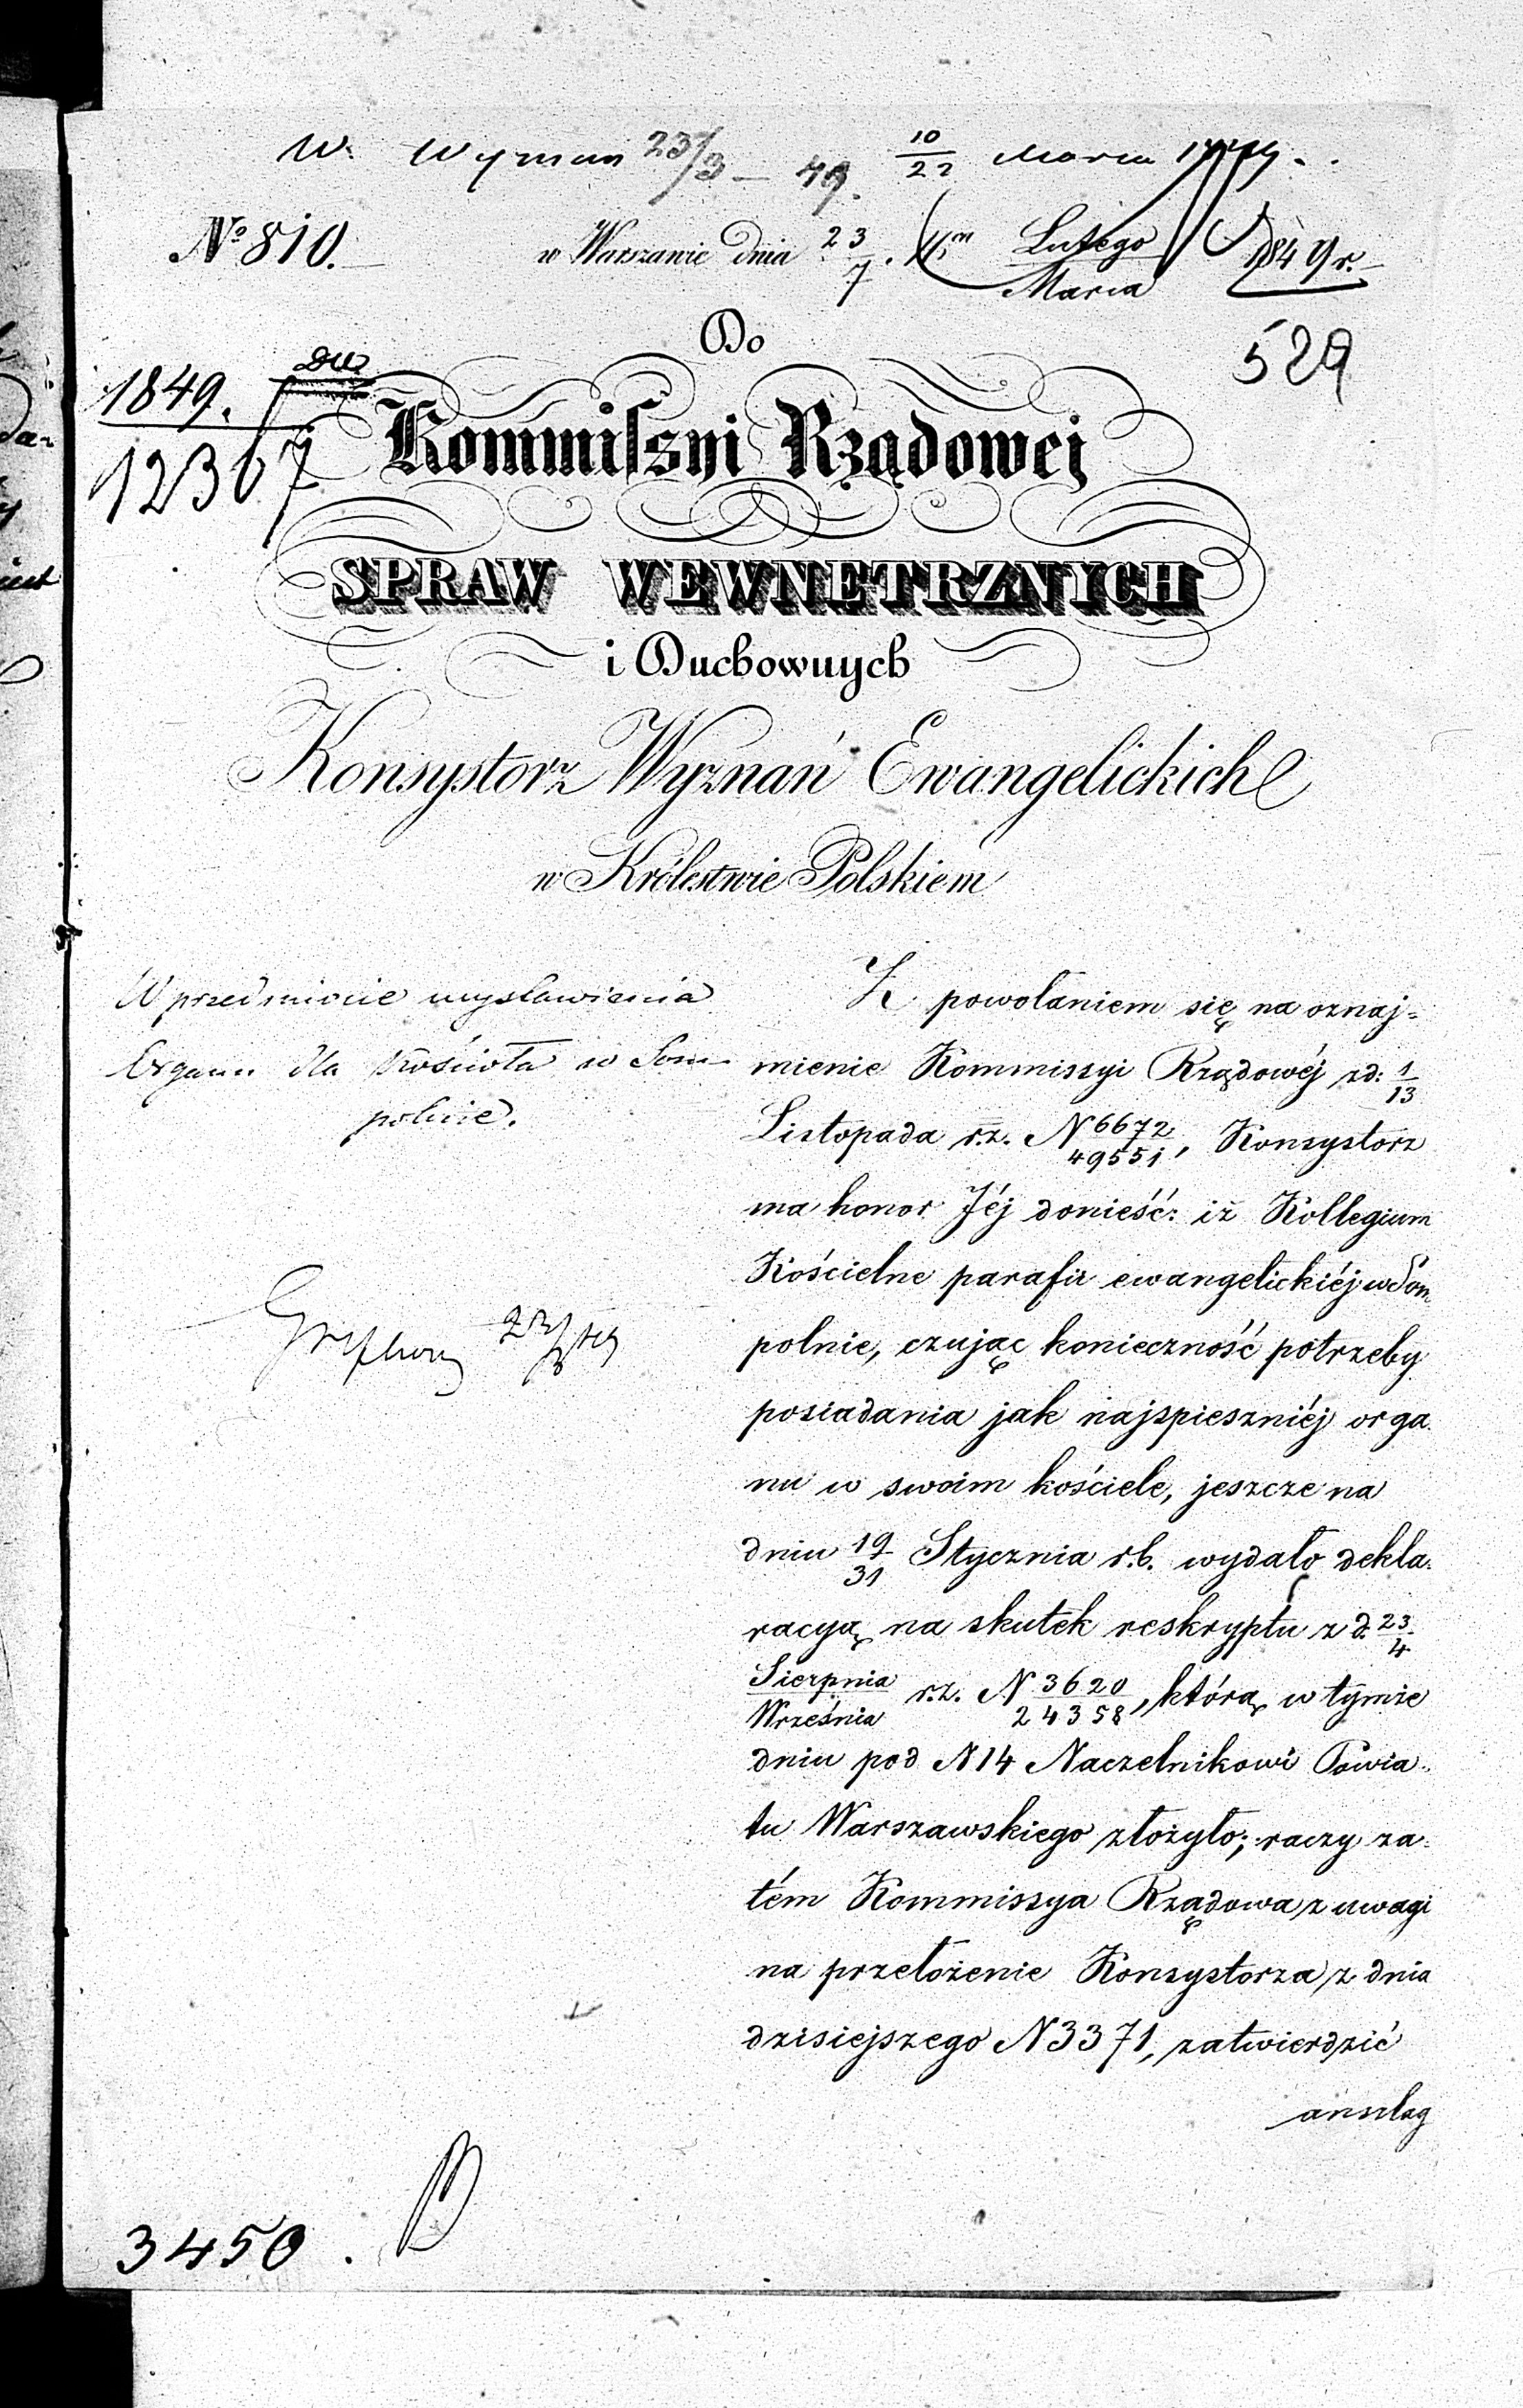 W. Wyznań 23/3 – 49. 10/22 Marca
No 810.
w Warszawie dnia 23/7 Lutego/Marca 1849 r.
529
Do
1849.
12367
Kommissyi Rządowej
SPRAW WEWNĘTRZNYCH
i Duchownych
Konsystorz Wyznań Ewangelickich
w Królestwie Polskiém
W przedmiocie wystawienia
Organu dla kościoła w Som-
polnie.
Z powołaniem się na oznaj=
mienie Kommissyi Rządowéj z d: 1/13
Listopada r.z. N 6672/49551, Konsystorz
ma honor Jéj donieść: iż Kollegium
Kościelne parafii ewangelickiéj w Som-
polnie, czując konieczność potrzeby
posiadania jak najspieszniéj orga-
nu w swoim kościele, jeszcze na
dniu 19/31 Stycznia r.b. wydało dekla-
racyą na skutek reskryptu z d. 23/4
Sierpnia/Września r.z. N 3620/24358, którą w tymże
dniu pod N 14 Naczelnikowi Powia-
tu Warszawskiego złożyło; raczy za-
tém Kommissya Rządowa z uwagi
na przełożenie Konsystorza z dnia
dzisiejszego N 3371, zatwierdzić
anszlag
3450.